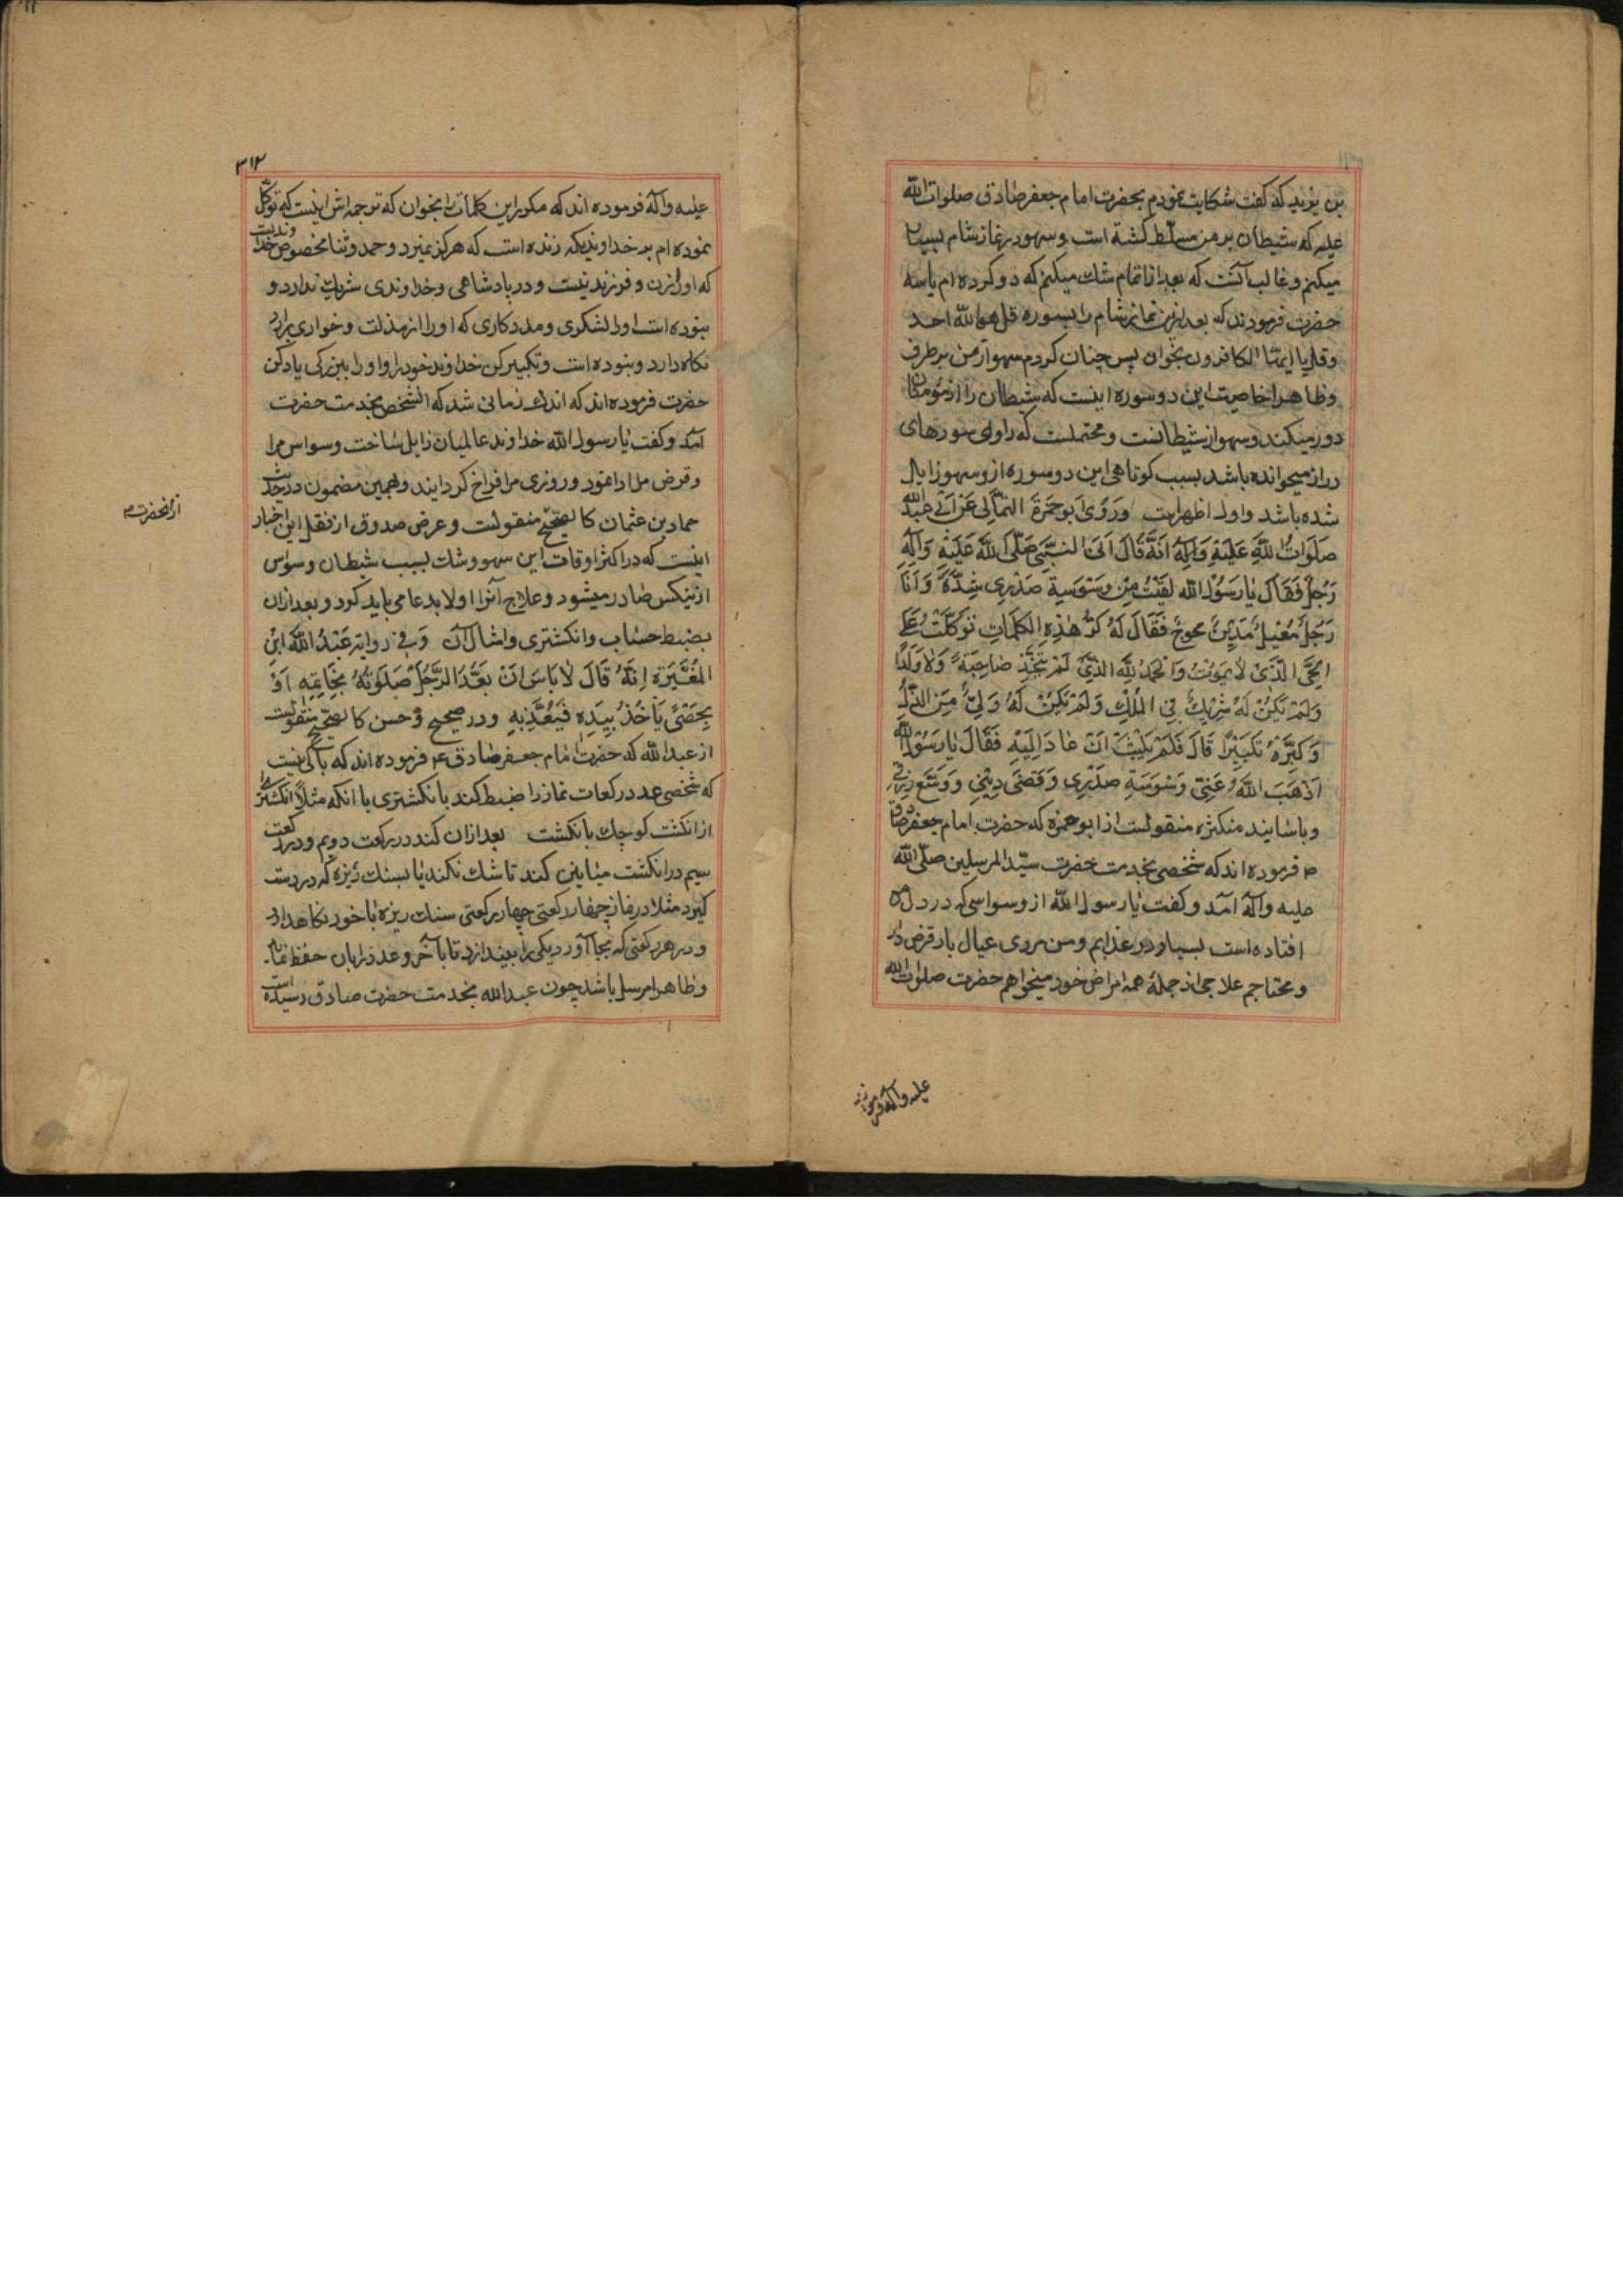 بن یزید که گفت شکایت نمودم بحضرت امام جعفر صادق صلوات الله
علیه که شیطان بر من مسلط گشته است و سهو در نماز شام بسیار
میکنم و غالب آنست که بعد از اتمام شك میکنم که دو کرده ام یا سه
حضرت فرمودند که بعد ازین نماز شام را بسوره قل هو الله احد
و قل یا ایها الکافرون بخوان پس چنان کردم سهو از من برطرف
و ظاهرا خاصیت این دو سوره اینست که شیطان را از مؤمنان
دور میکند و سهو از شیطانست و محتملست که راوی سورهای
دراز میخوانده باشد بسبب کوتاهی این دو سوره ازو سهو زایل
شده باشد و اول اظهر است وَرَوَی اَبو حَمزَةَ الثمالی عَن ابی عبد الله
صَلَوَاتُ اللّٰهِ عَلَیْهِ وَآلِهِ اَنَّهُ قَالَ اَتَی النَّبِیَّ صَلَّی اللّٰهُ عَلَیْهِ وَآلِهِ
رَجُلٌ فَقَالَ یٰا رَسُوْلَ اللّٰه لَقِیْتُ مِنْ وَسْوَسَةِ صَدْرِی شِدَّةً وَاَنَا
رَجُلٌ مُعِیْلٌ مَدِیْنٌ محوج فَقَالَ لَهُ کَرِّرْ هٰذِهِ الکَلِمَاتِ تَوَکَّلْتُ عَلَی
الْحَیِّ الَّذِیْ لاٰ یَمُوْتُ وَالْحَمْدُ لِلّٰهِ الَّذِیْ لَمْ یَتَّخِذْ صٰاحِبَةً وَلاٰ وَلَدًا
وَلَمْ یَکُنْ لَهُ شَرِیْكٌ فِی المُلْكِ وَلَمْ یَکُنْ لَهُ وَلِیٌّ مِنَ الذُّلِّ
وَکَبِّرْهُ تَکْبِیْرًا قَالَ فَلَمْ یَلْبَثْ اَنْ عٰادَ اِلَیْهِ فَقَالَ یٰا رَسُوْلَ اللّٰه
اَذْهَبَ اللّٰهُ عَنِّی وَسْوَسَةَ صَدْرِی وَقَضَی دِیْنِی وَوَسَّعَ رِزْقِی
و باسانید متکثره منقولست از ابو حمزه که حضرت امام جعفر صادق
م فرموده اند که شخصی بخدمت حضرت سیّد المرسلین صلّی الله
علیه وآله آمد و گفت یا رسول الله از وسواسی که در دل من
افتاده است بسیار در عذابم و من مردی عیال بار قرض دار
و محتاجم علاجی از جملهٔ همه امراض خود میخواهم حضرت صلوات الله
علیه وآله فرموده اند
۳۱۲
علیه وآله فرموده اند که مکرر این کلمات را بخوان که ترجمه اش اینست که توکّل
نموده ام بر خداوندیکه زنده است که هرگز نمیرد و حمد و ثنا مخصوص خداوندیست
که او را زن و فرزند نیست و در پادشاهی و خداوندی شریك ندارد و
نبوده است او را لشکری و مددکاری که او را از مذلت و خواری برای او
نگاه دارد و نبوده است و تکبیر کن خداوند خود را و او را ببزرگی یاد کن
حضرت فرموده اند که اندك زمانی شد که آنشخص بخدمت حضرت
آمد و گفت یا رسول الله خداوند عالمیان زایل ساخت وسواس مرا
و قرض مرا ادا نمود و روزی مرا فراخ گردانید و همین مضمون در حدیث
حماد بن عثمان کالصحیح منقولست و غرض صدوق از نقل این اخبار
از آنحضرت م
اینست که در اکثر اوقات این سهو و شك بسبب شیطان و وسواس
ازینکس صادر میشود و علاج آنرا اولا بدعا می باید کرد و بعد ازان
بضبط حساب و انگشتری و امثال آن وَفِی روایة عَبْدُ اللّٰهِ ابْنِ
المُغَیْرَةِ اِنَّهُ قَالَ لاٰ بَاسَ اَنْ یَعُدَّ الرَّجُلُ صَلٰوتَهُ بِخَاتِمِهِ اَوْ
بِحَصًی یَاْخُذُ بِیَدِهِ فَیَعُدُّ بِهِ و در صحیح و حسن کالصحیح منقولست
از عبد الله که حضرت امام جعفر صادق ع فرموده اند که باکی نیست
که شخصی عدد رکعات نماز را ضبط کند بانگشتری یا انکه مثلاً انگشتر را
از انگشت کوچك بانگشت بعد ازان کند در رکعت دویم و در رکعت
سیم در انگشت میانین کند تا شك نکند یا بسنك ریزه که در دست
گیرد مثلا در نماز چهار رکعتی چهار سنك ریزه با خود نگاه دارد
و در هر رکعتی که بجا آورد یکی را بیندازد تا بآخر و عدد را بان حفظ نماید
و ظاهرا مرسل باشد چون عبد الله بخدمت حضرت صادق نرسیده است